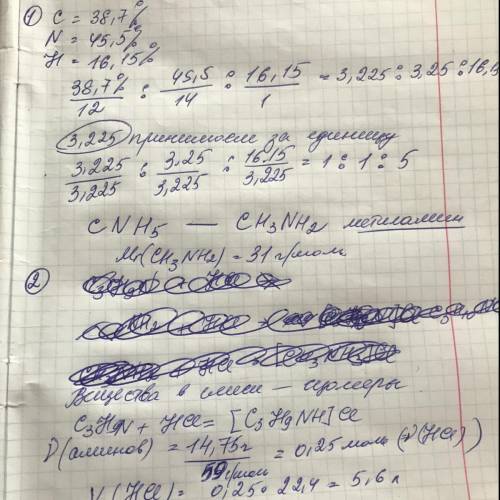 ① C = 38,7%
N = 45,5%
H = 16,15%
38,7% : 45,5 : 16,15 = 3,225 : 3,25 : 16,15
12 14 1
3,225 принимаем за единицу
3,225 : 3,25 : 16.15 = 1 : 1 : 5
3,225 3,225 3,225
CNH5 — CH3NH2 метиламин
Mr(CH3NH2) = 31 г/моль
②
Вещества в смеси — изомеры
C3H9N + HCl = [C3H9NH]Cl
ν(аминов) = 14,75г = 0,25 моль (ν(HCl))
59 г/моль
V(HCl) = 0,25 · 22,4 = 5,6 л